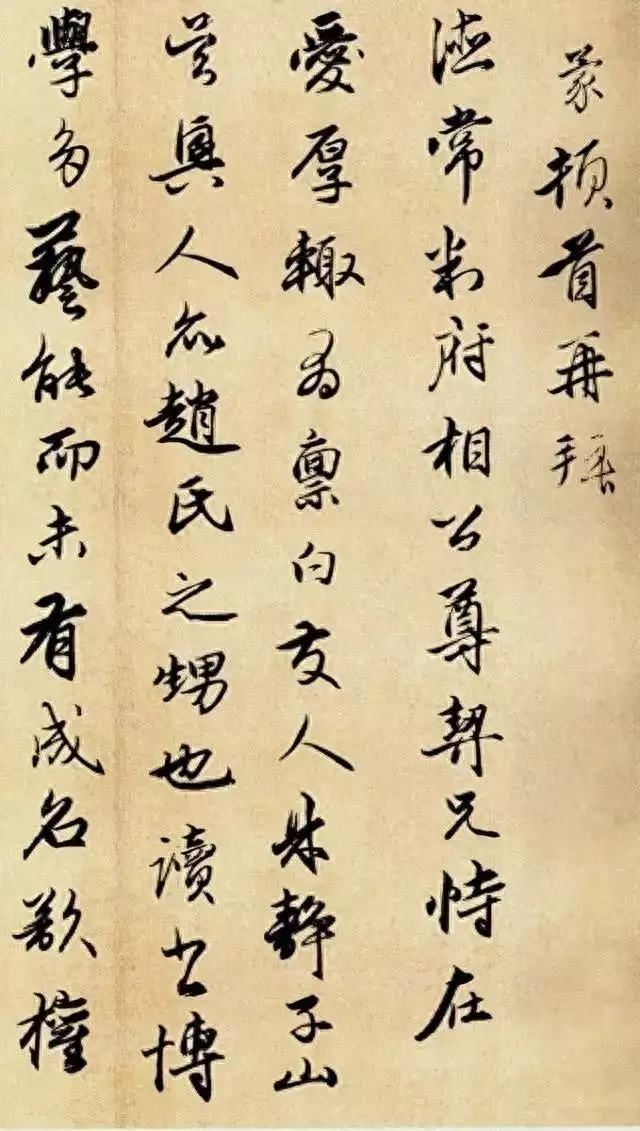 蒙頓首再拜
德常判府相公尊契兄恃在
愛厚輙為稟白友人朱靜子山
吳興人亦趙氏之甥也讀書博
學多藝能而未有成名欲權